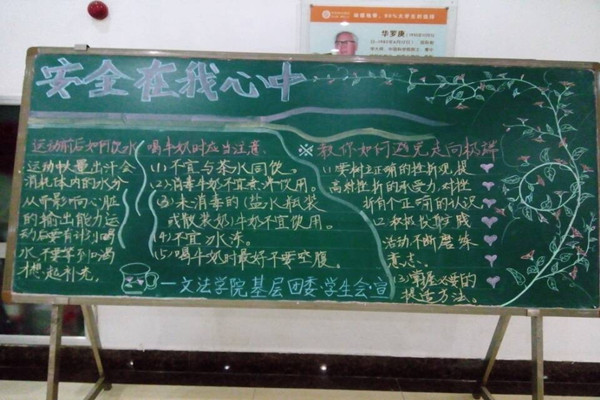 华罗庚
安全在我心中
运动前后如何饮水
运动中大量出汗会
消耗体内的水分
从而影响心脏
的输出能力运
动后要有计划喝
水,不要等到口渴
才想起补充。
喝牛奶时应当注意:
(1)不宜与茶水同饮。
(2)消毒牛奶不宜煮沸饮用。
(3)未消毒的(盐水瓶装
或散装奶)牛奶不宜饮用。
(4)不宜冰冻。
(5)喝牛奶时最好不要空腹。
※教你如何避免走向极端
(1)要树立正确的挫折观,提
高对挫折的承受力,对挫
折有个正确的认识
(2)积极在实践
活动中不断磨练
意志。
(3)掌握必要的
技适方法。
—文法学院基层团委·学生会·宣